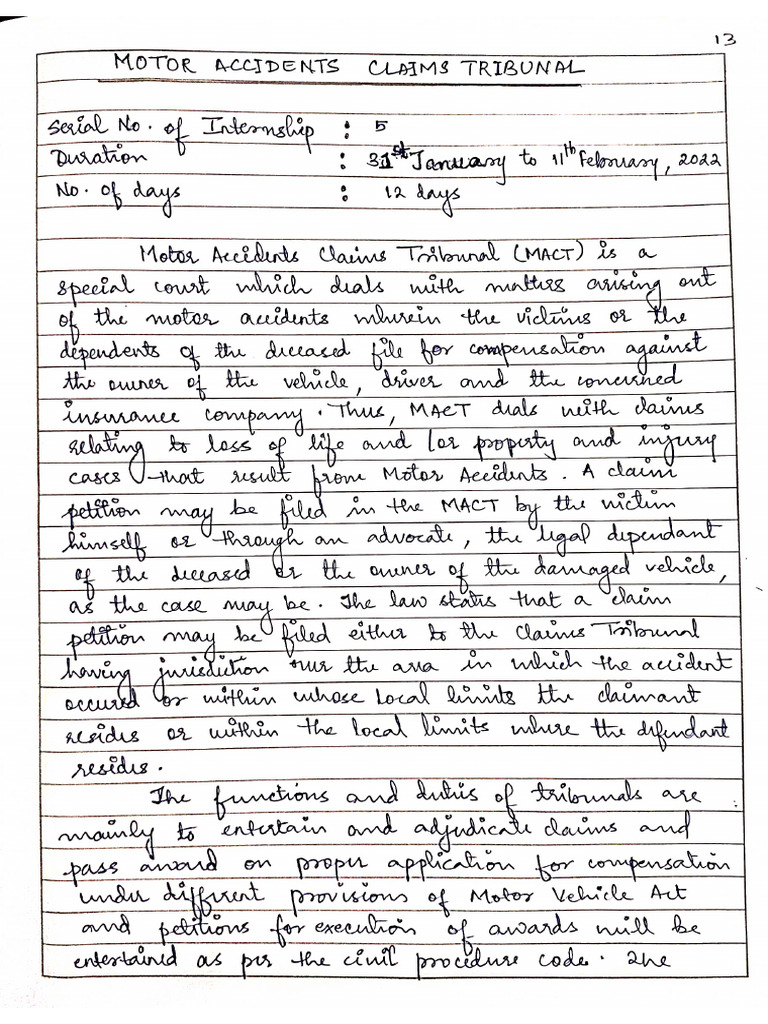 13
MOTOR ACCIDENTS CLAIMS TRIBUNAL
Serial No. of Internship : 5
Duration : 31st January to 11th February, 2022
No. of days : 12 days
Motor Accidents Claims Tribunal (MACT) is a
special court which deals with matters arising out
of the motor accidents wherein the victims or the
dependents of the deceased file for compensation against
the owner of the vehicle, driver and the concerned
insurance company. Thus, MACT deals with claims
relating to loss of life and /or property and injury
cases that result from Motor Accidents. A claim
petition may be filed in the MACT by the victim
himself or through an advocate, the legal dependant
of the deceased or the owner of the damaged vehicle,
as the case may be. The law states that a claim
petition may be filed either to the Claims Tribunal
having jurisdiction over the area in which the accident
occured or within whose local limits the claimant
resides or within the local limits where the defendant
resides.
The functions and duties of tribunals are
mainly to entertain and adjudicate claims and
pass award on proper application for compensation
under different provisions of Motor Vehicle Act
and petitions for execution of awards will be
entertained as per the civil procedure code. The